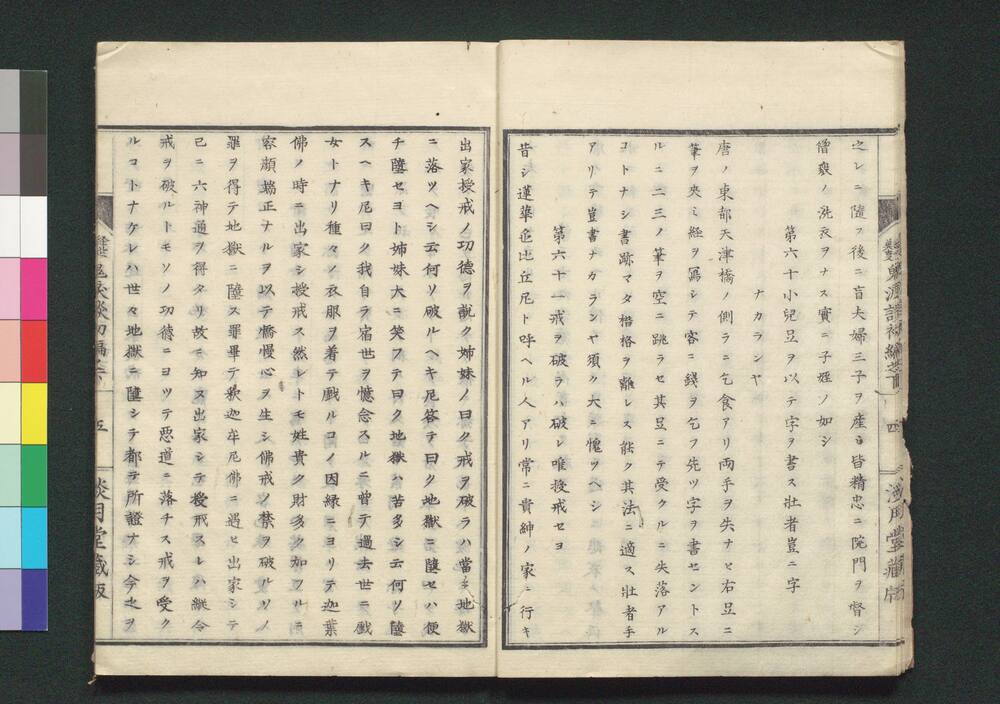 之レニ隨フ後ニ盲夫婦三子ヲ産ム皆精忠ニ院門ヲ督シ
僧裂ノ洗衣ヲナス實ニ子姪ノ如シ
第六十小兒足ヲ以テ字ヲ書ス壯者豈ニ字
ナカランヤ
唐ノ東都天津橋ノ側ラニ乞食アリ両手ヲ失ナヒ右足ニ
筆ヲ夾ミ經ヲ寫シテ客ニ錢ヲ乞フ先ツ字ヲ書セントス
ルニ二三ノ筆ヲ空ニ跳ラセ其足ニテ受クルニ失落アル
コトナシ書跡マタ楷格ヲ離レス能ク其法ニ適ス壯者手
アリテ豈書ナカランヤ須ク大ニ愧ツヘシ
第六十一戒ヲ破ラハ破レ唯授戒セヨ
昔シ蓮華色比丘尼ト呼ヘル人アリ常ニ貴紳ノ家ニ行キ
四
出家授戒ノ功德ヲ説ク姉妹ノ曰ク戒ヲ破ラハ當ニ地獄
ニ落ツヘシ云何ソ破ルヘキ尼答テ曰ク地獄ニ墮セハ便
チ墮セヨト姉妹大ニ笑フテ曰ク地獄ハ苦多シ云何ソ墮
スヘキ尼曰ク我自ラ宿世ヲ憶念スルニ曽テ過去世ニ戲
女トナリ種々ノ衣服ヲ着テ戲ルコノ因緣ニヨリテ迦葉
佛ノ時ニ出家シ授戒ス然レトモ姓貴ク財多ク加フルニ
容顔端正ナルヲ以テ憍慢心ヲ生シ佛戒ノ禁ヲ破ルソノ
罪ヲ得テ地獄ニ墮ス罪畢テ釈迦牟尼佛ニ遇ヒ出家シテ
已ニ六神通ヲ得タリ故ニ知ス出家シテ授戒スレハ縦令
戒ヲ破ルトモソノ功德ニヨツテ悪道ニ落チス戒ヲ受ク
ルコトナケレハ世々地獄ニ墮シテ都テ所證ナシ今之ヲ
五